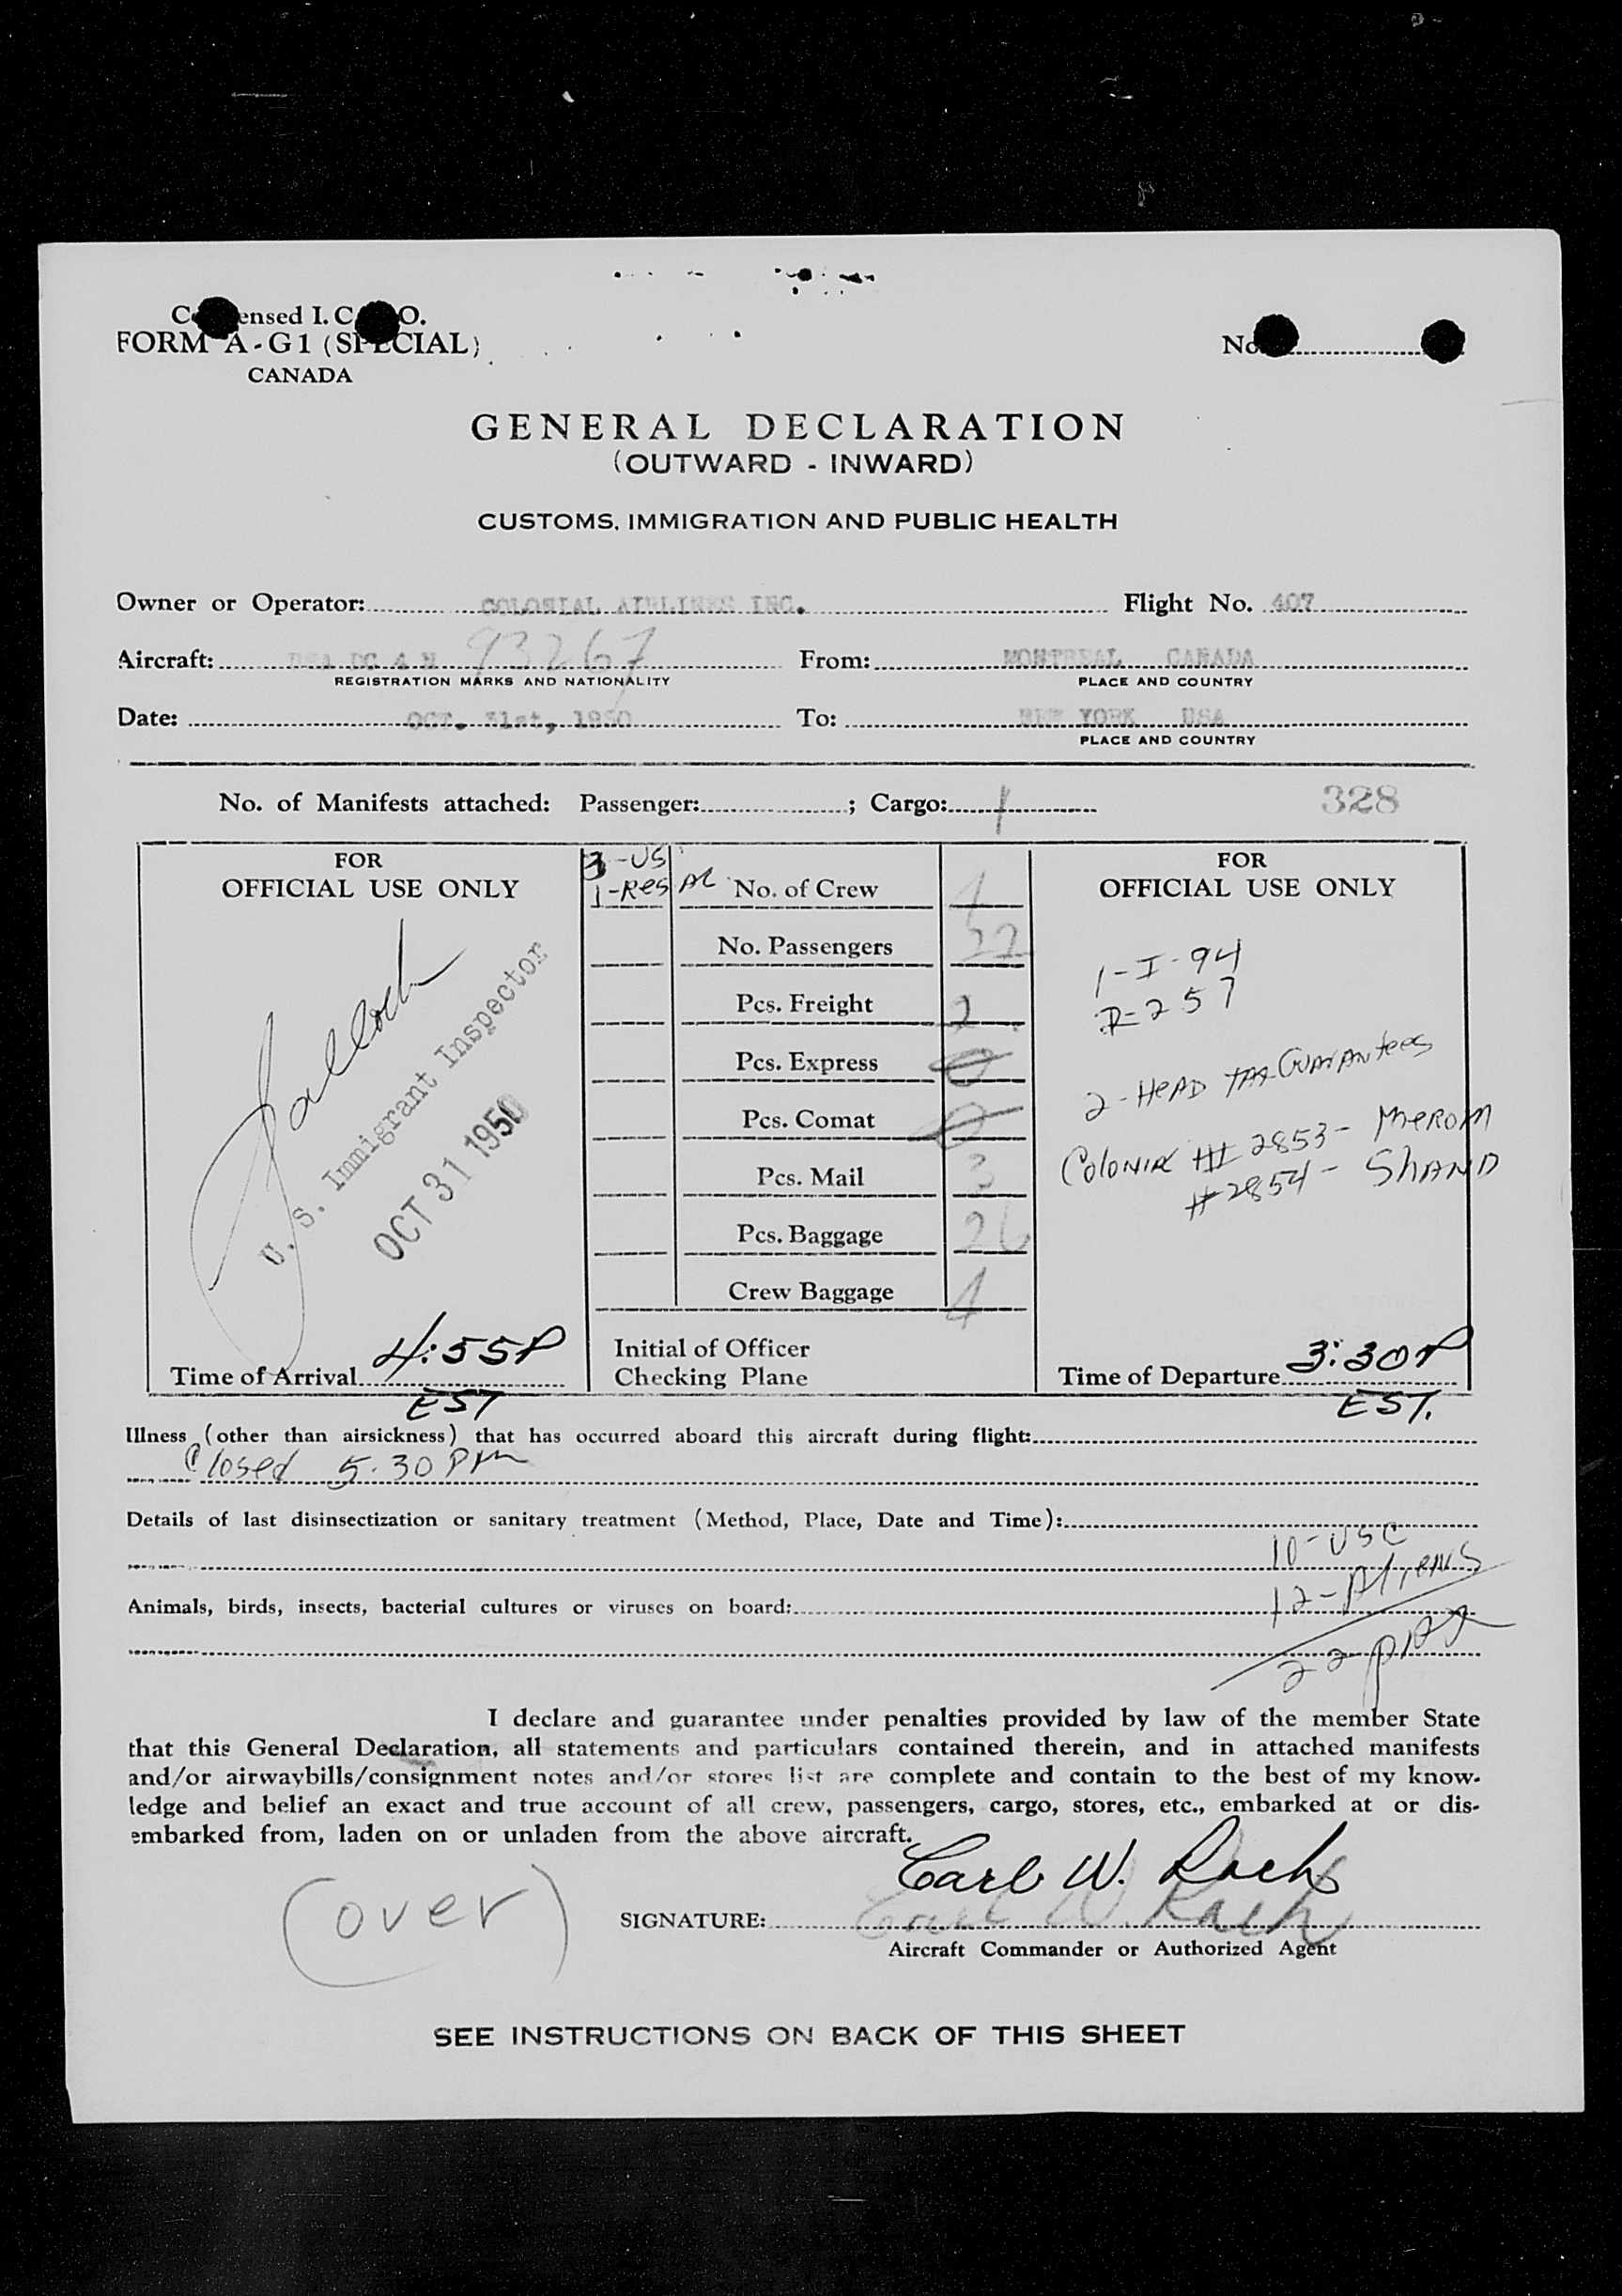 Condensed I. C. A. O.
FORM A-G1 (SPECIAL)
CANADA
No.
GENERAL DECLARATION
(OUTWARD - INWARD)
CUSTOMS, IMMIGRATION AND PUBLIC HEALTH
Owner or Operator: COLONIAL AIRLINES INC. Flight No. 407
Aircraft: USA DC 4 N 93267 From: MONTREAL CANADA
REGISTRATION MARKS AND NATIONALITY PLACE AND COUNTRY
Date: OCT. 31st, 1950 To: NEW YORK USA
PLACE AND COUNTRY
No. of Manifests attached: Passenger: ; Cargo: 1 328
FOR
OFFICIAL USE ONLY
U. S. Immigrant Inspector
OCT 31 1950
Time of Arrival 4:55P
EST
3-US
1-Res Al No. of Crew 4
No. Passengers 22
Pcs. Freight 2
Pcs. Express 0
Pcs. Comat 0
Pcs. Mail 3
Pcs. Baggage 26
Crew Baggage 4
Initial of Officer
Checking Plane
FOR
OFFICIAL USE ONLY
1-I-94
P-257
2-HEAD TAX GUARANTEES
Colonial # 2853- MEROM
# 2854- SHAND
Time of Departure 3:30P
EST.
Illness (other than airsickness) that has occurred aboard this aircraft during flight:
Closed 5.30 PM
Details of last disinsectization or sanitary treatment (Method, Place, Date and Time):
10-USC
12-Aliens
Animals, birds, insects, bacterial cultures or viruses on board:
22
I declare and guarantee under penalties provided by law of the member State
that this General Declaration, all statements and particulars contained therein, and in attached manifests
and/or airwaybills/consignment notes and/or stores list are complete and contain to the best of my know-
ledge and belief an exact and true account of all crew, passengers, cargo, stores, etc., embarked at or dis-
embarked from, laden on or unladen from the above aircraft.
Carl W. Rach
(over) SIGNATURE: Carl W. Rach
Aircraft Commander or Authorized Agent
SEE INSTRUCTIONS ON BACK OF THIS SHEET